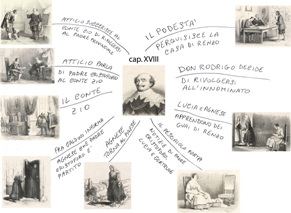 ATTILIO SUGGERISCE AL
CONTE ZIO DI RIVOLGERSI
AL PADRE PROVINCIALE
IL PODESTA'
PERQUISISCE LA
CASA DI RENZO
cap.XVIII
ATTILIO PARLA
DI PADRE CRISTOFORO
AL CONTE ZIO
DON RODRIGO DECIDE
DI RIVOLGERSI
ALL'INNOMINATO
IL CONTE
ZIO
LUCIA E AGNESE
APPRENDONO DEI
GUAI DI RENZO
FRA GALDINO INFORMA
AGNESE CHE PADRE
CRISTOFORO E'
PARTITO
AGNESE
TORNA AL PAESE
IL PESCIVENDOLO PORTA
NOTIZIE DI PADRE
LUCIA E